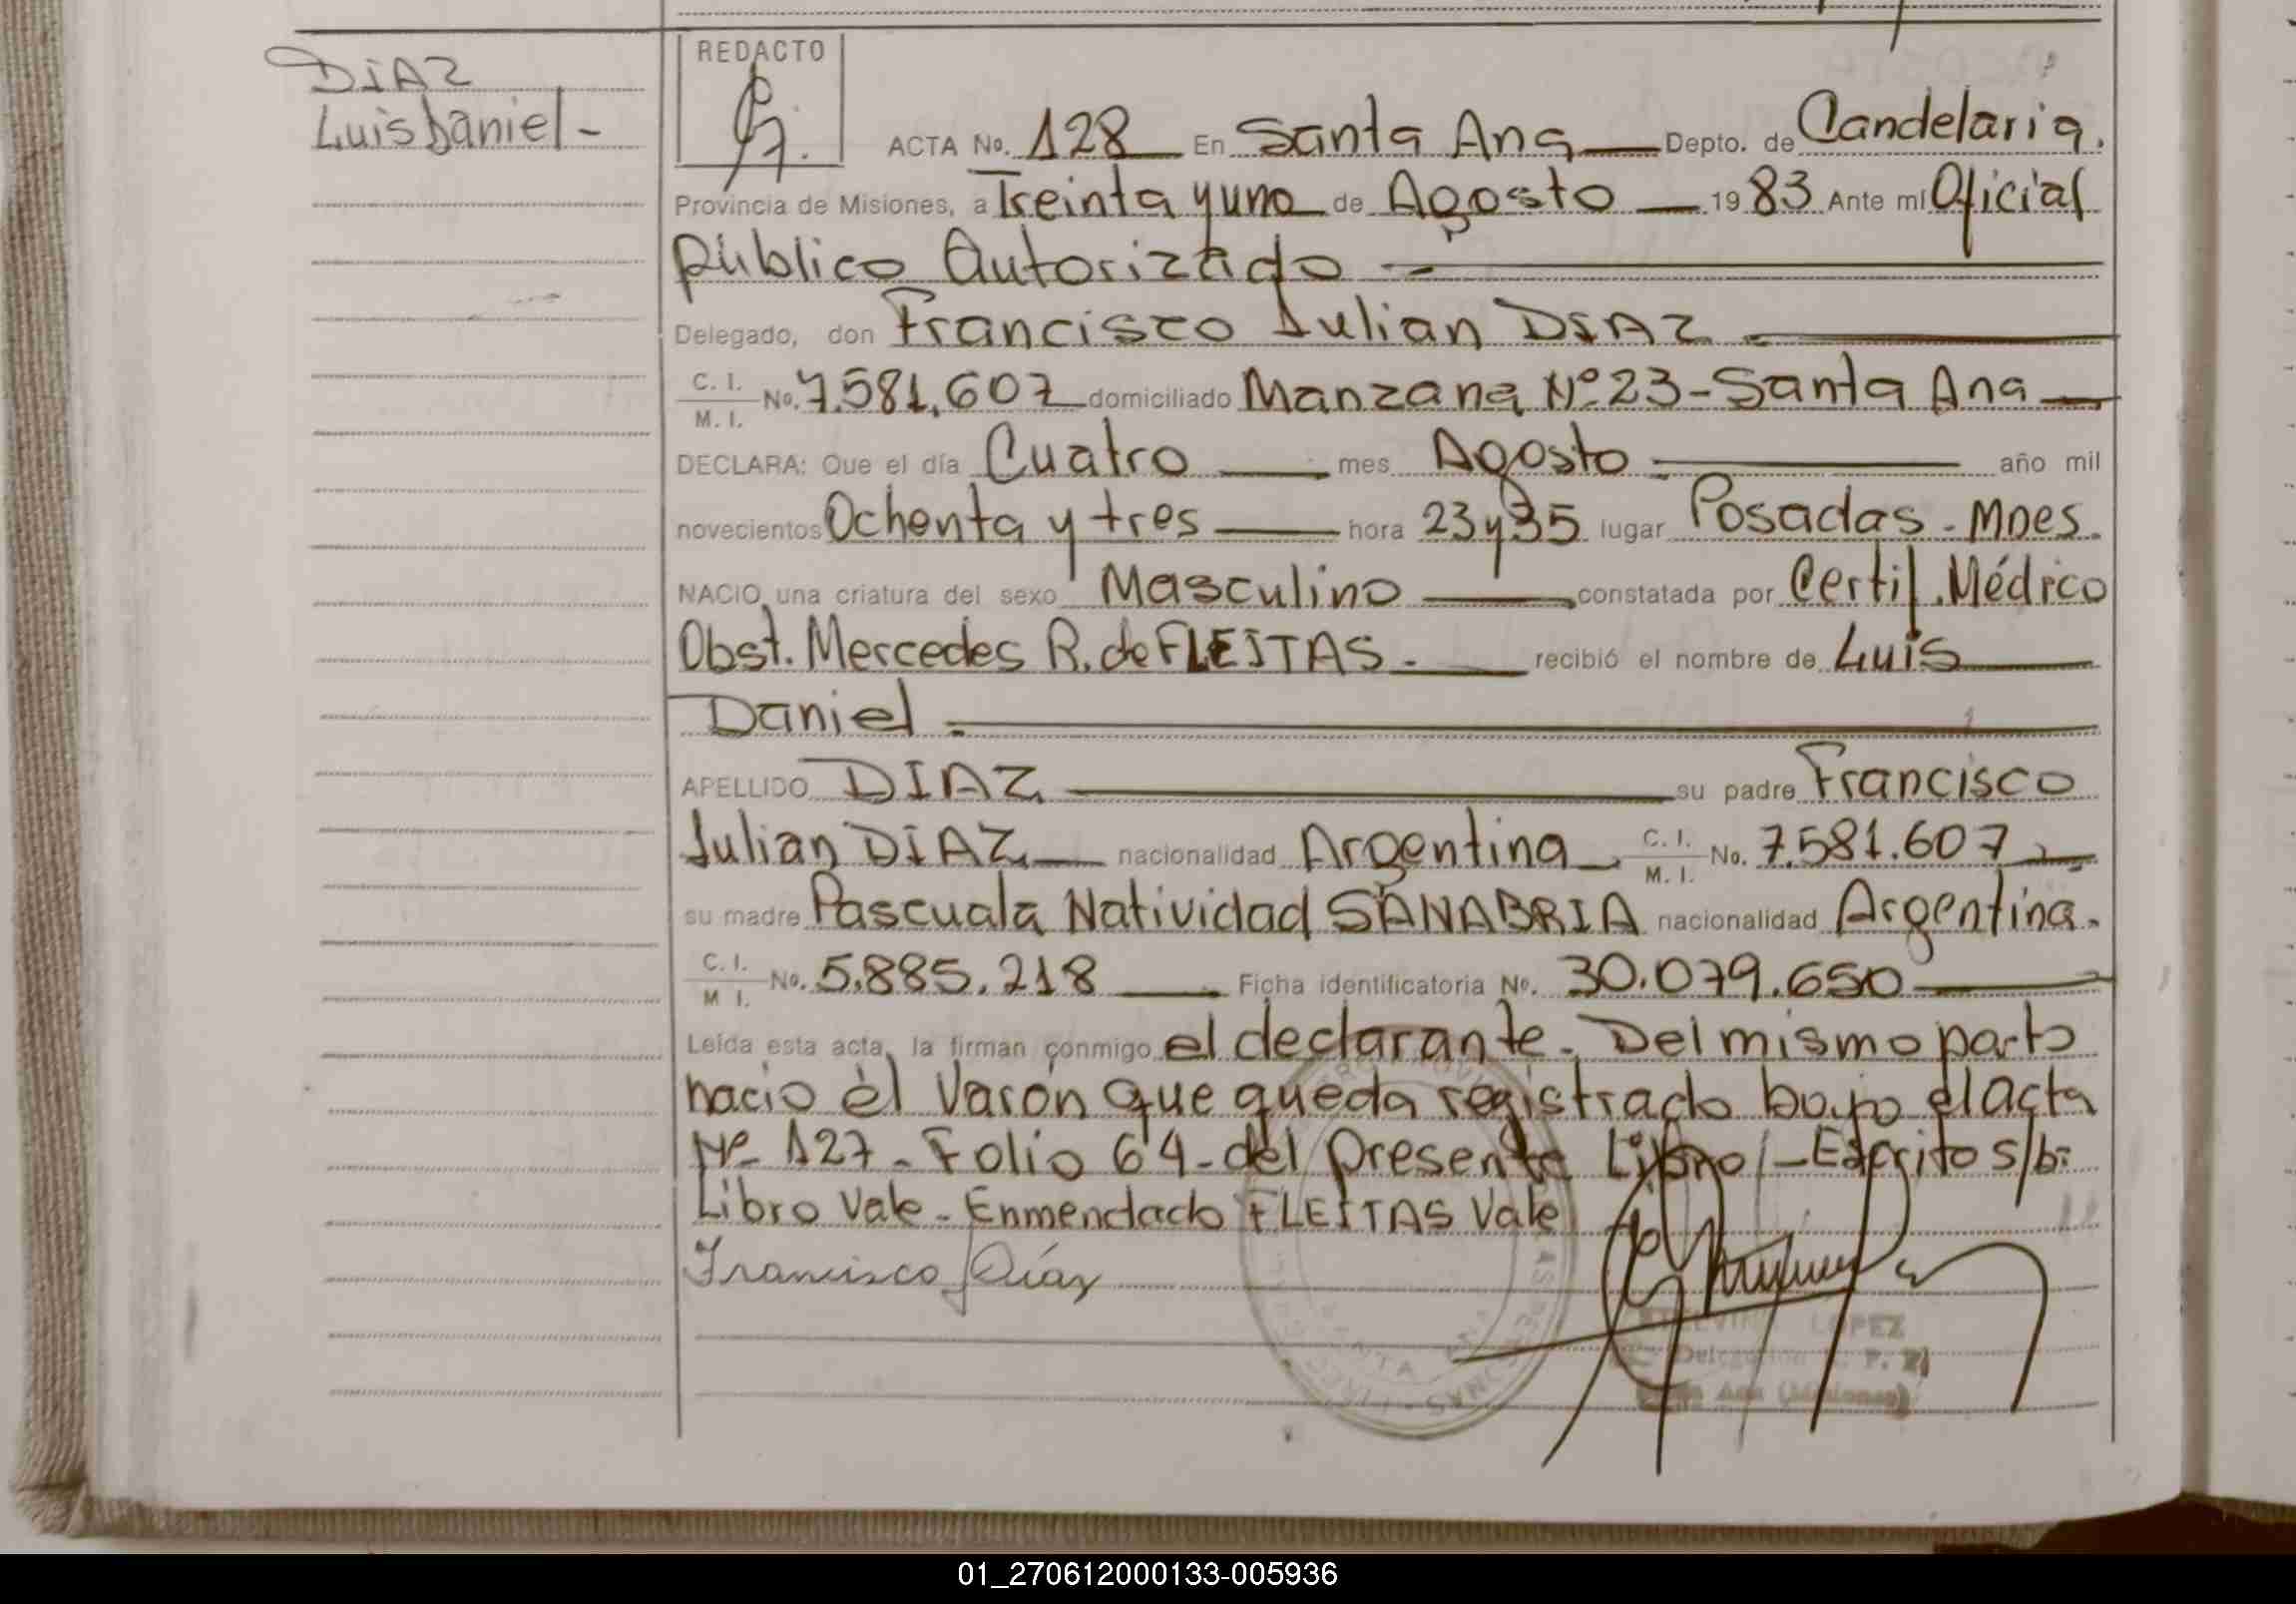 DIAZ
Luis Daniel -
REDACTO
ACTA No. 128 En Santa Ana Depto. de Candelaria.
Provincia de Misiones, a Treinta y uno de Agosto 1983 Ante mí Oficial
Público Autorizado -
Delegado, don Francisco Julian DIAZ
C. I. / M. I. No. 7.581.607 domiciliado Manzana Nº 23 - Santa Ana
DECLARA: Que el día Cuatro mes Agosto año mil
novecientos Ochenta y tres hora 23 y 35 lugar Posadas - Mnes.
NACIO una criatura del sexo Masculino constatada por Certif. Médico
Obst. Mercedes R. de FLEITAS. recibió el nombre de Luis
Daniel.
APELLIDO DIAZ su padre Francisco
Julian DIAZ nacionalidad Argentina C. I. / M. I. No. 7.581.607
su madre Pascuala Natividad SANABRIA nacionalidad Argentina.
C. I. / M I. No. 5.885.218 Ficha identificatoria No. 30.079.650
Leída esta acta, la firman conmigo el declarante. Del mismo parto
nacio el Varón que queda registrado bajo el acta
Nº 127 - Folio 64 - del presente Libro/ - Escrito s/b:
Libro Vale - Enmendado FLEITAS Vale
Francisco J Díaz
LOPEZ
01_270612000133-005936